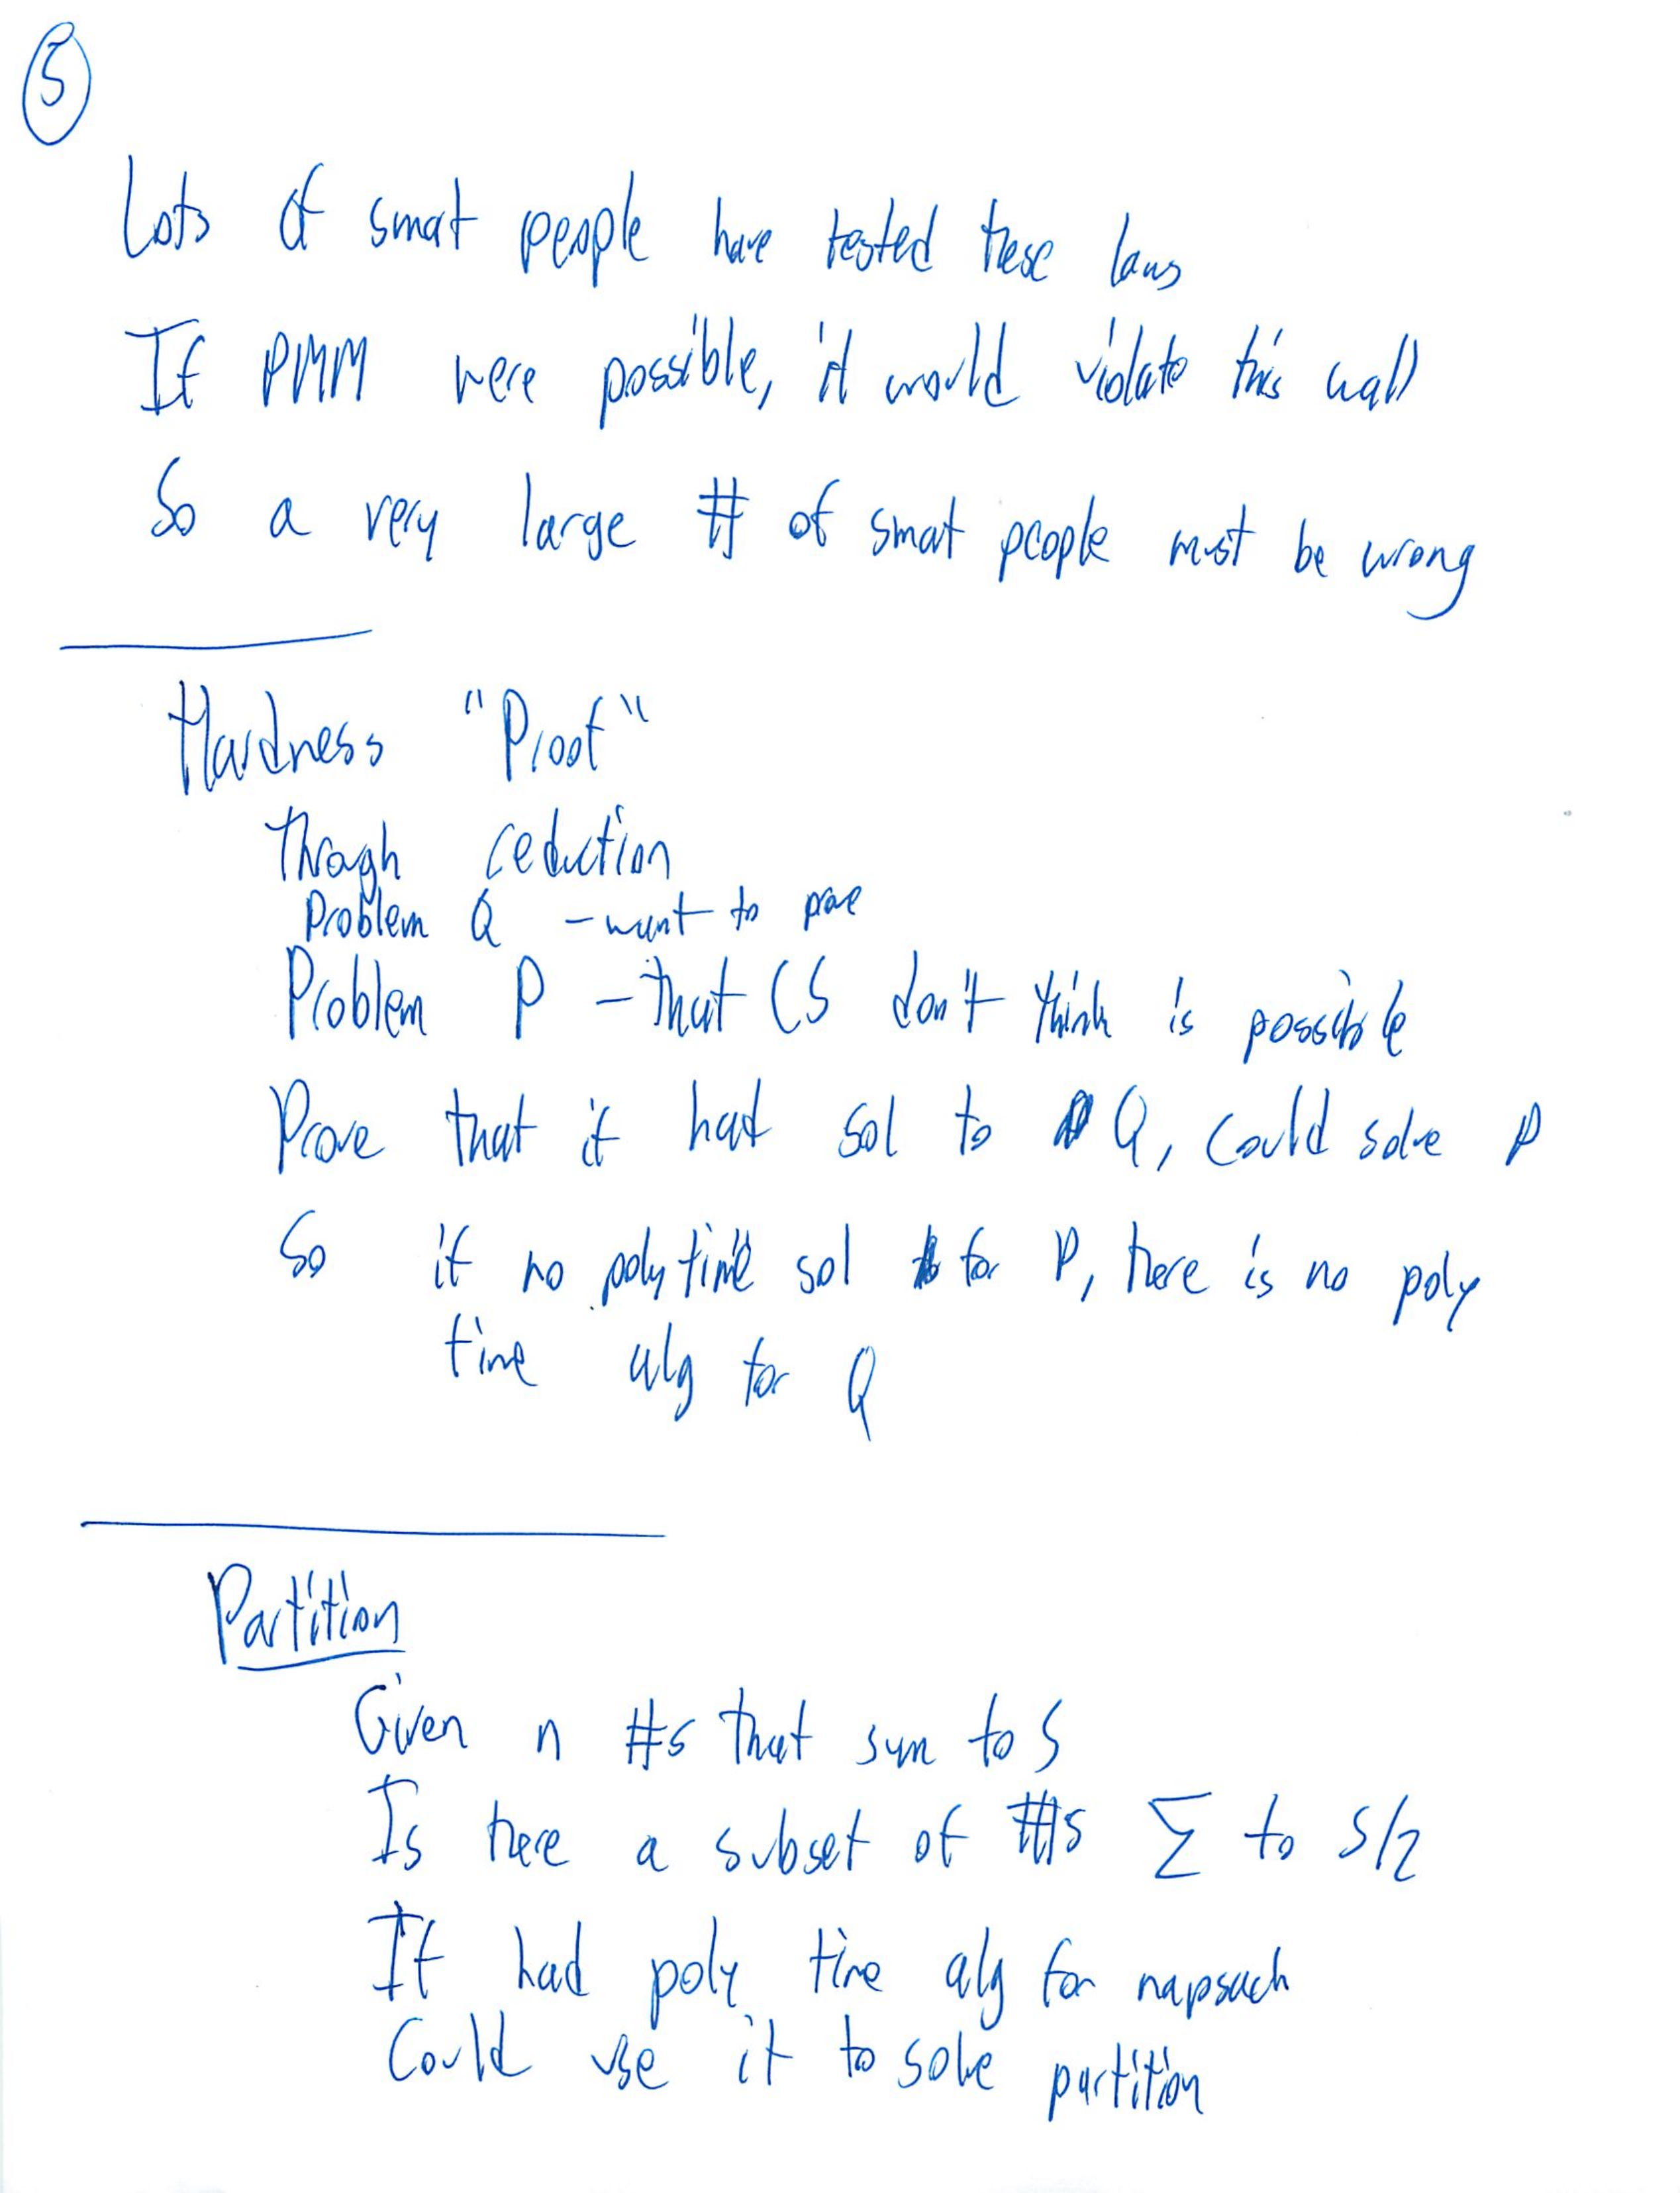 5
Lots of smat people have tested these laws
If PMM were possible, it would violate this wall
So a very large # of smat people must be wrong
Hardness "Proof"
Through reduction
Problem Q - want to prove
Problem P - that CS don't think is possible
Prove that if had sol to Q, could solve P
So if no poly time sol for P, there is no poly
time alg for Q
Partition
Given n #s that sum to S
Is there a subset of #s Σ to S/2
If had poly time alg for napsack
Could use it to solve partition